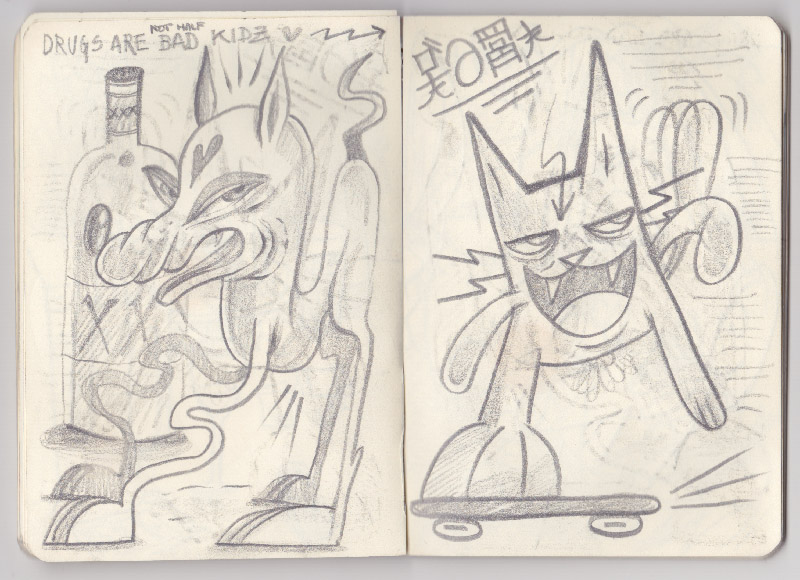 DRUGS ARE NOT HALF BAD KIDZ
XXX
XX